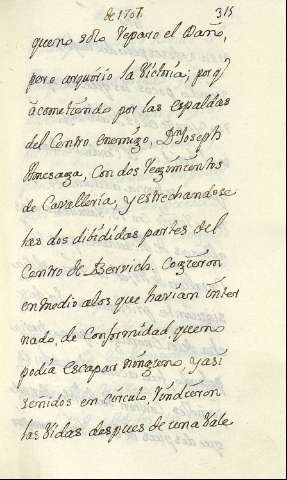 de 1707. 315
queno solo reparo el Daño,
pero arquirio la Victoria; porq̃
acometiendo por las espaldas
del Centro enemigo, Dⁿ Joseph
Amesaga, Con dos regimientos
de Cavalleria, y estrechandose
las dos dibididas partes del
Centro de Bervich. Cogieron
enmedio alos que havian inter
nado, de Conformidad, queno
podia escapar ninguno, yasi
señidos en circulo, rindieron
las vidas despues de una Vale